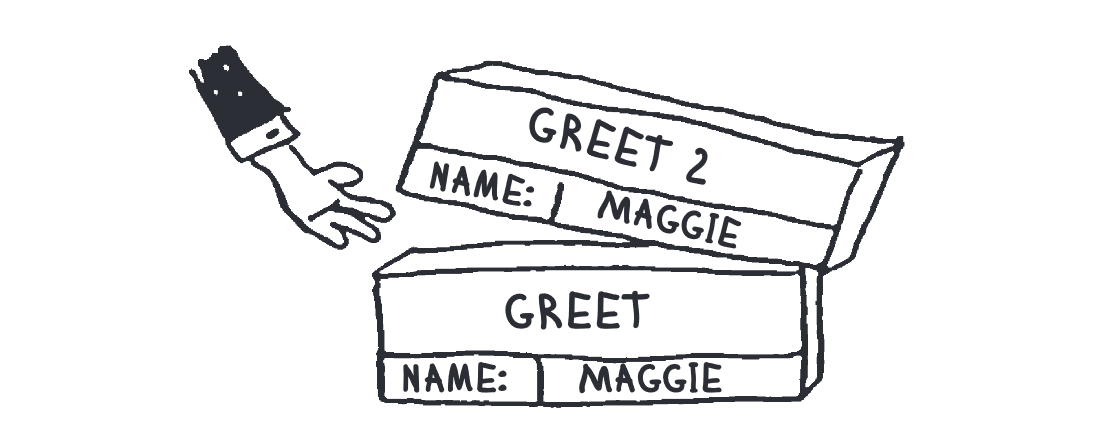 GREET 2
NAME: MAGGIE
GREET
NAME: MAGGIE